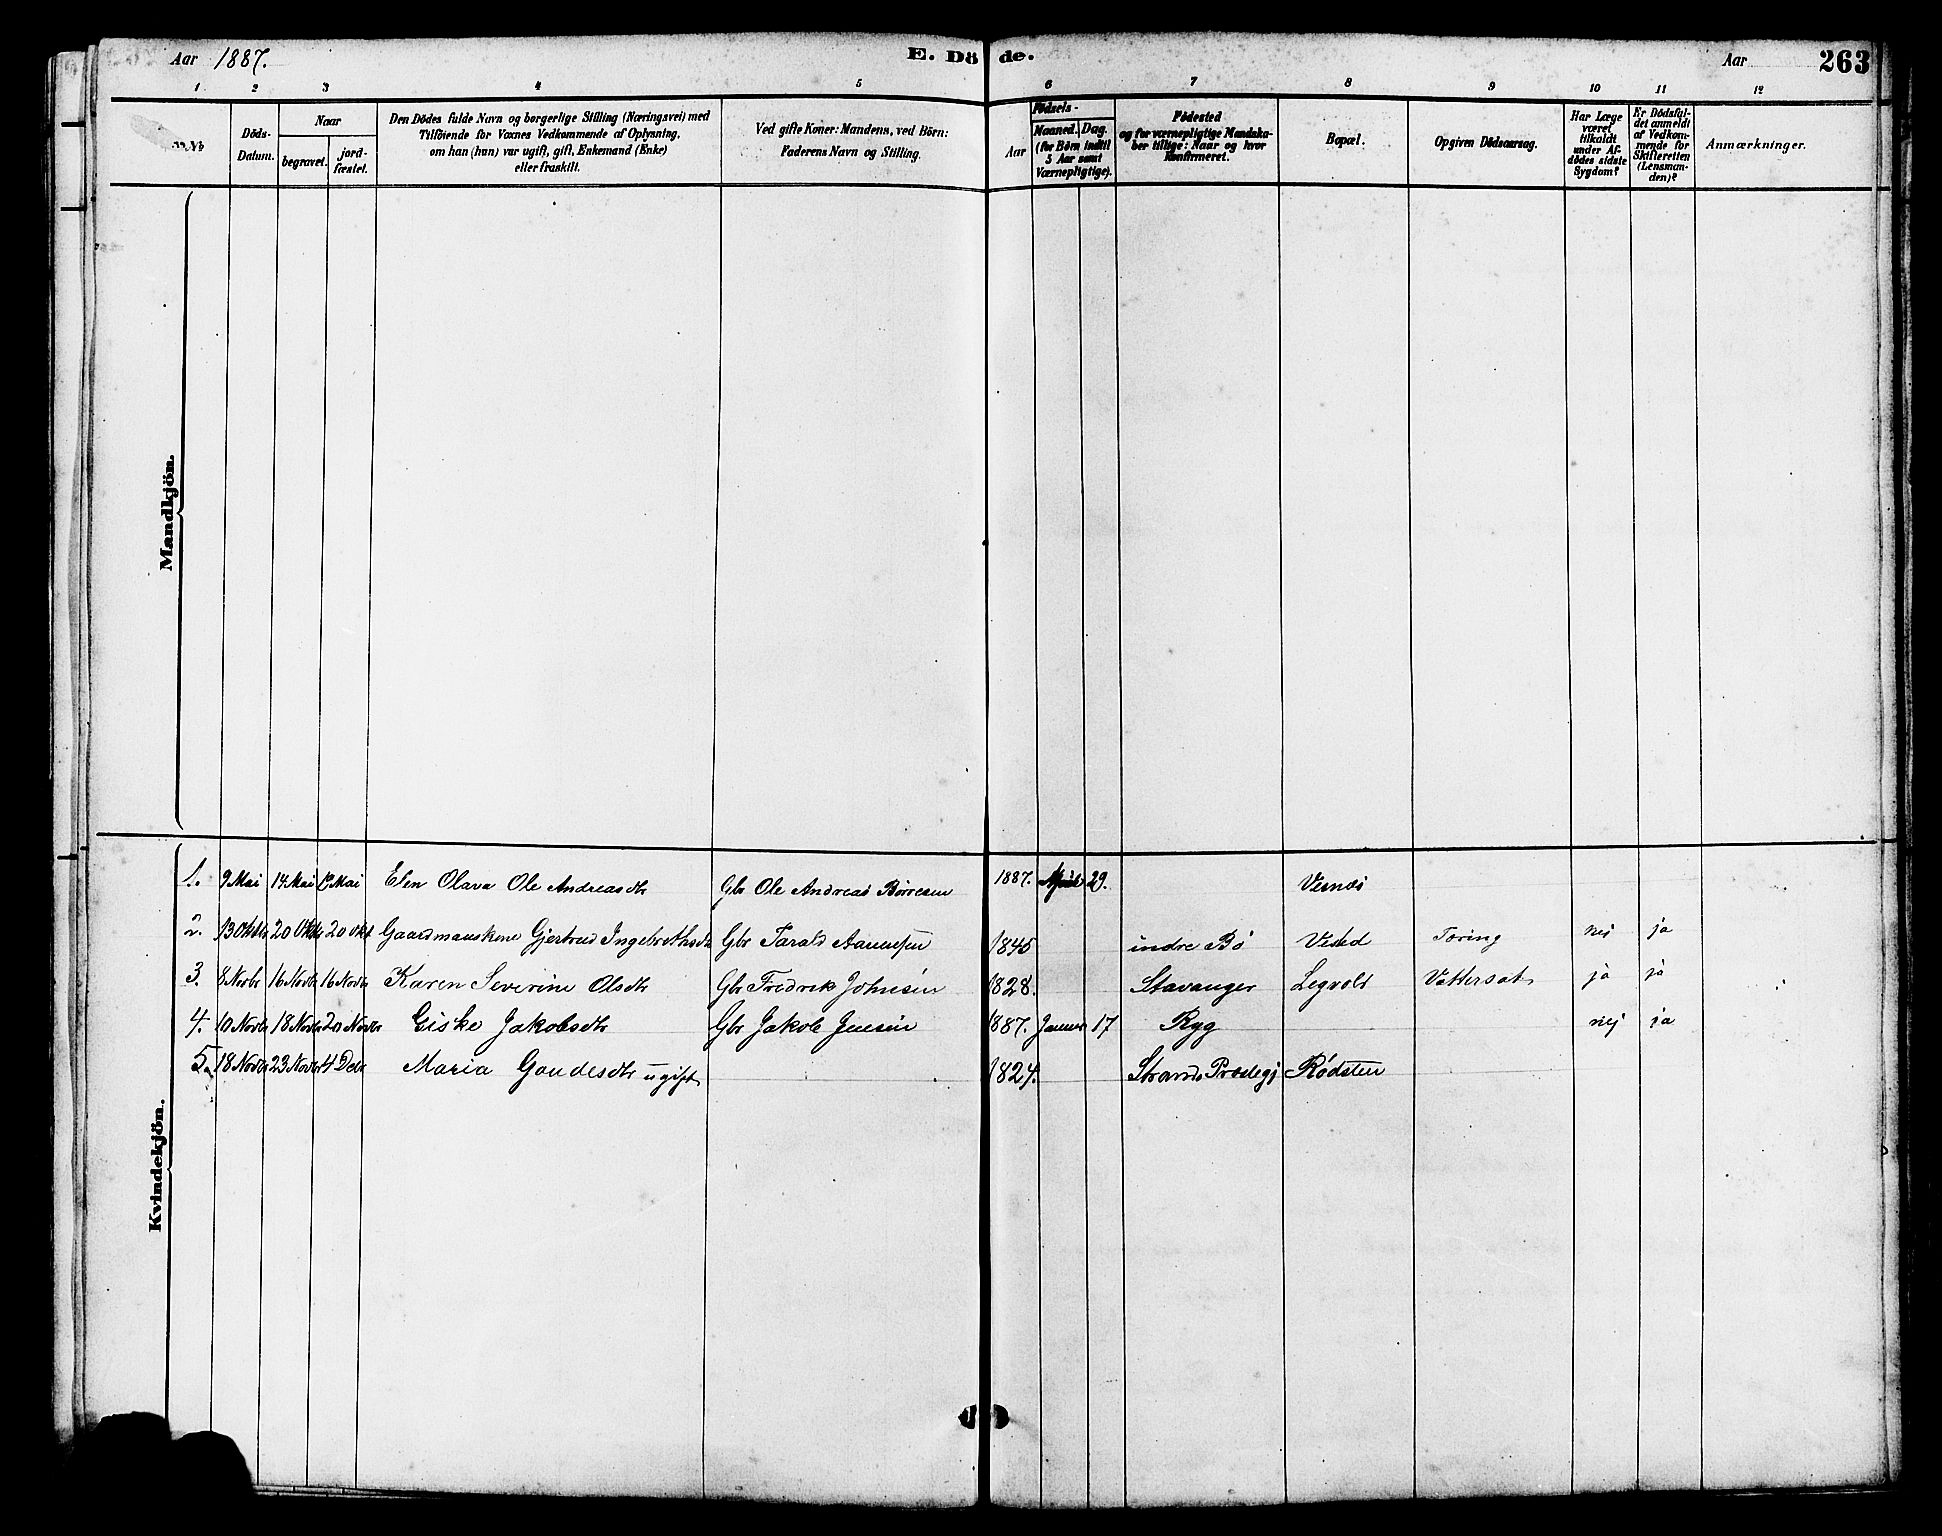 Aar 1887. E. Döde. Aar 263
1 2 3 4 5 6 7 8 9 10 11 12
No
Döds-Datum.
Naar
begravet.
jord-fæstet.
Den Dödes fulde Navn og borgerlige Stilling (Næringsvei) med
Tilföiende for Voxnes Vedkommende af Oplysning,
om han (hun) var ugift, gift, Enkemand (Enke)
eller fraskilt.
Ved gifte Koner: Mandens, ved Börn:
Faderens Navn og Stilling.
Födsels-
Aar
Maaned. Dag.
(for Börn indtil
5 Aar samt
Værnepligtige).
Födested
og for værnepligtige Mandska-
ber tillige: Naar og hvor
Konfirmeret.
Bopæl.
Opgiven Dödsaarsag.
Har Læge
været
tilkaldt
under Af-
dödes sidste
Sygdom?
Er Dödsfal-
det anmeldt
af Vedkom-
mende for
Skifteretten
(Lensman-
den)?
Anmærkninger.
Mandkjön.
Kvindekjön.
1. 9 Mai 14 Mai Mai Elen Olava Ole Andreasdtr Gbr Ole Andreas Börresen 1887. April 29. Vesnæs
2. 13 Oktbr 20 Oktbr 20 Okt Gaardmandskone Gjertrud Ingebrethsdtr Gbr Tarald Aanensen 1845 indre Bö Vested Tæring nej ja
3. 8 Novbr 16 Novbr 16 Novbr Karen Severine Olsdtr Gbr Fredrik Johnsen 1828. Stavanger Legvold Vattersot ja ja
4. 10 Novbr 18 Novbr 20 Novbr Giske Jakobsdtr Gbr Jakob Jensen 1887. Januar 17 Ryg nej ja
5. 18 Novbr 23 Novbr 4 Debr Maria Gaudesdtr ugift 1824. Strands Prestegj Rödsten